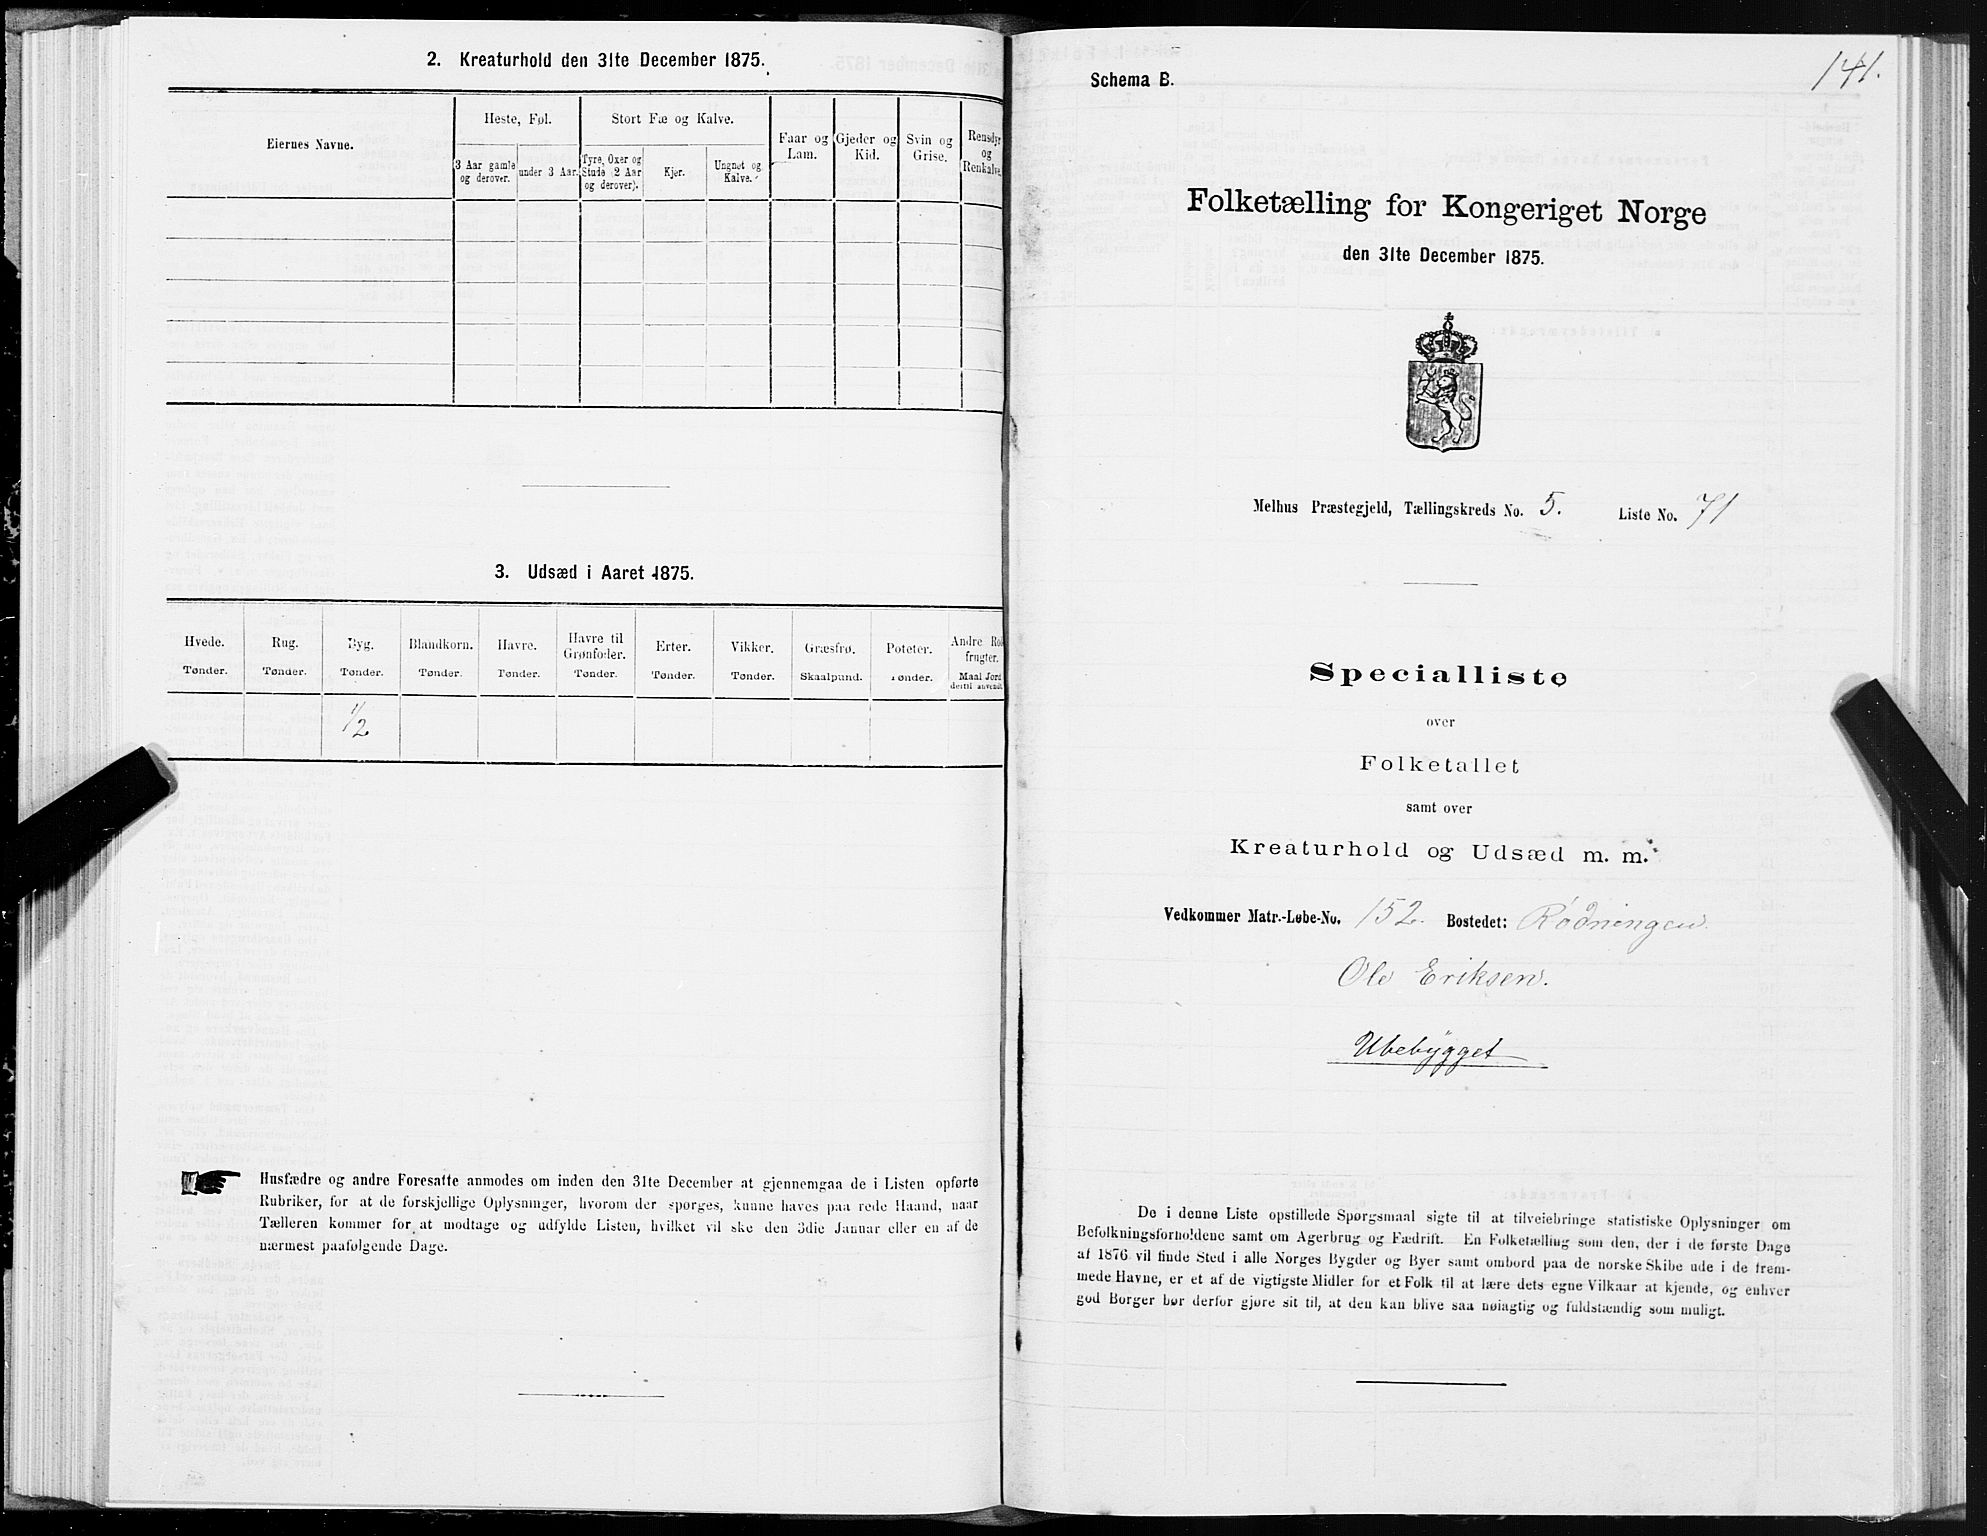 2. Kreaturhold den 31te December 1875.
Eiernes Navne.
Heste, Føl.
Stort Fæ og Kalve.
Faar og Lam.
Gjeder og Kid.
Svin og Grise.
Rensdyr og Renkalve.
3 Aar gamle og derover.
under 3 Aar.
Tyre, Oxer og Stude (2 Aar og derover).
Kjør.
Ungnøt og Kalve.
3. Udsæd i Aaret 1875.
Hvede. Rug. Byg. Blandkorn. Havre. Havre til Grønfoder. Erter. Vikker. Græsfrø. Poteter. Andre Rod-frugter.
Tønder. Tønder. Tønder. Tønder. Tønder. Tønder. Tønder. Tønder. Skaalpund. Tønder. Maal Jord dertil anvendt.
1/2
Husfædre og andre Foresatte anmodes om inden den 31te December at gjennemgaa de i Listen opførte
Rubriker, for at de forskjellige Oplysninger, hvorom der spørges, kunne haves paa rede Haand, naar
Tælleren kommer for at modtage og udfylde Listen, hvilket vil ske den 3die Januar eller en af de
nærmest paafølgende Dage.
141.
Schema B.
Folketælling for Kongeriget Norge
den 31te December 1875.
Melhus Præstegjeld, Tællingskreds No. 5. Liste No. 71
Specialliste
over
Folketallet
samt over
Kreaturhold og Udsæd m. m.
Vedkommer Matr.-Løbe-No. 152. Bostedet: Rødningen.
Ole Eriksen.
Ubebygget
De i denne Liste opstillede Spørgsmaal sigte til at tilveiebringe statistiske Oplysninger om
Befolkningsforholdene samt om Agerbrug og Fædrift. En Folketælling som den, der i de første Dage
af 1876 vil finde Sted i alle Norges Bygder og Byer samt ombord paa de norske Skibe ude i de frem-
mede Havne, er et af de vigtigste Midler for et Folk til at lære dets egne Vilkaar at kjende, og enhver
god Borger bør derfor gjøre sit til, at den kan blive saa nøiagtig og fuldstændig som muligt.